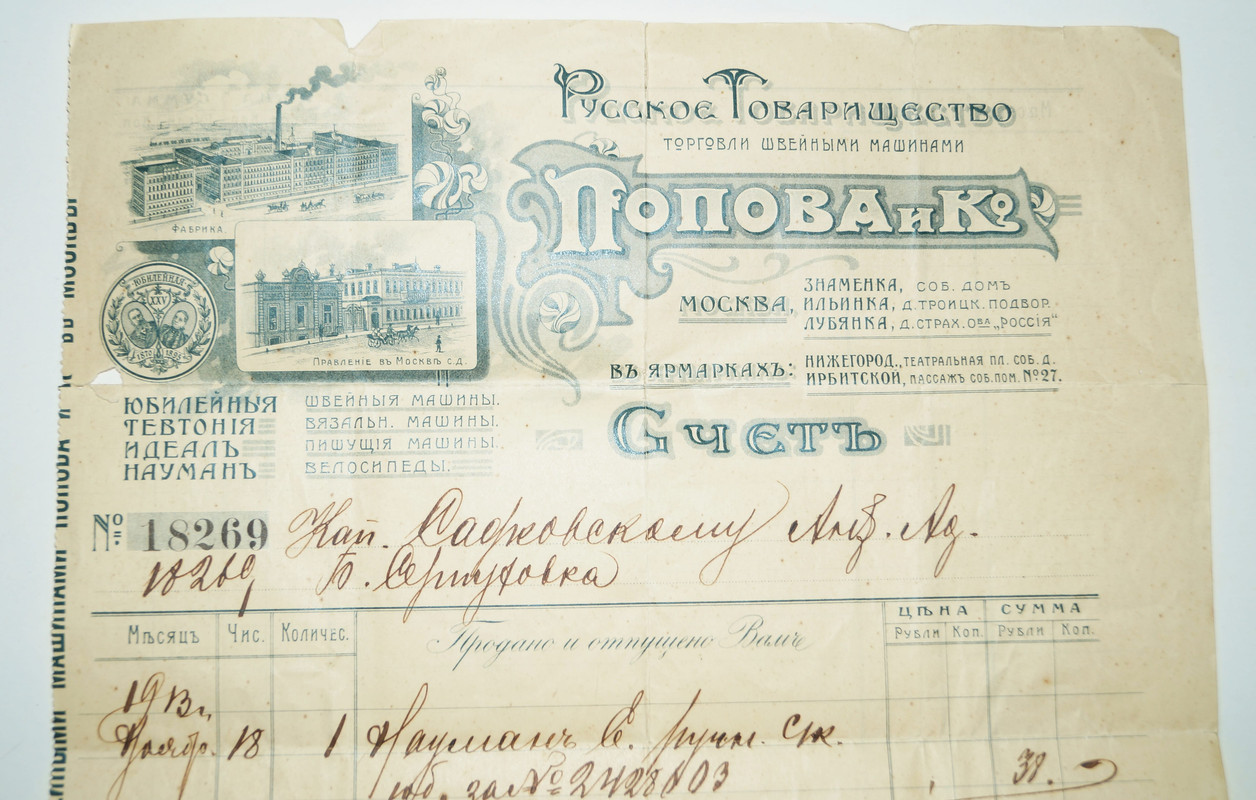 Русское Товарищество
торговли швейными машинами
Попова и Ко
Москва,
Знаменка, соб. домъ
Ильинка, д. Троицк. подвор.
Лубянка, д. страх. о-ва „Россія"
въ ярмаркахъ:
Нижегород., театральная пл. соб. д.
Ирбитской, пассажъ соб. пом. № 27.
Фабрика.
Юбилейная
XXV
1870 1895
Правленіе въ Москвѣ с.д.
Юбилейныя
Тевтонія
Идеалъ
Науманъ
Швейныя машины.
Вязальн. машины.
Пишущія машины.
Велосипеды.
Счетъ
№ 18269 Кап. Садковскому Ад.
18269 Б. Серпуховка
Мѣсяцъ Чис. Количес. Продано и отпущено Вамъ Цѣна Сумма
Рубли Коп. Рубли Коп.
1913 г.
Ноябр. 18 1 Науманъ Е. ручн.
за № 38.
машинами Попова и въ Москвѣ